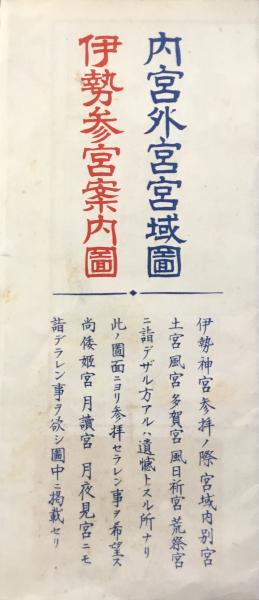 内宮外宮宮域圖
伊勢参宮案内圖
伊勢神宮参拝ノ際宮域内別宮
土宮風宮多賀宮風日祈宮荒祭宮
ニ詣デザル方アルハ遺憾トスル所ナリ
此ノ圖面ニヨリ参拝セラレン事ヲ希望ス
尚倭姫宮月讀宮月夜見宮ニモ
詣デラレン事ヲ欲シ圖中ニ掲載セリ